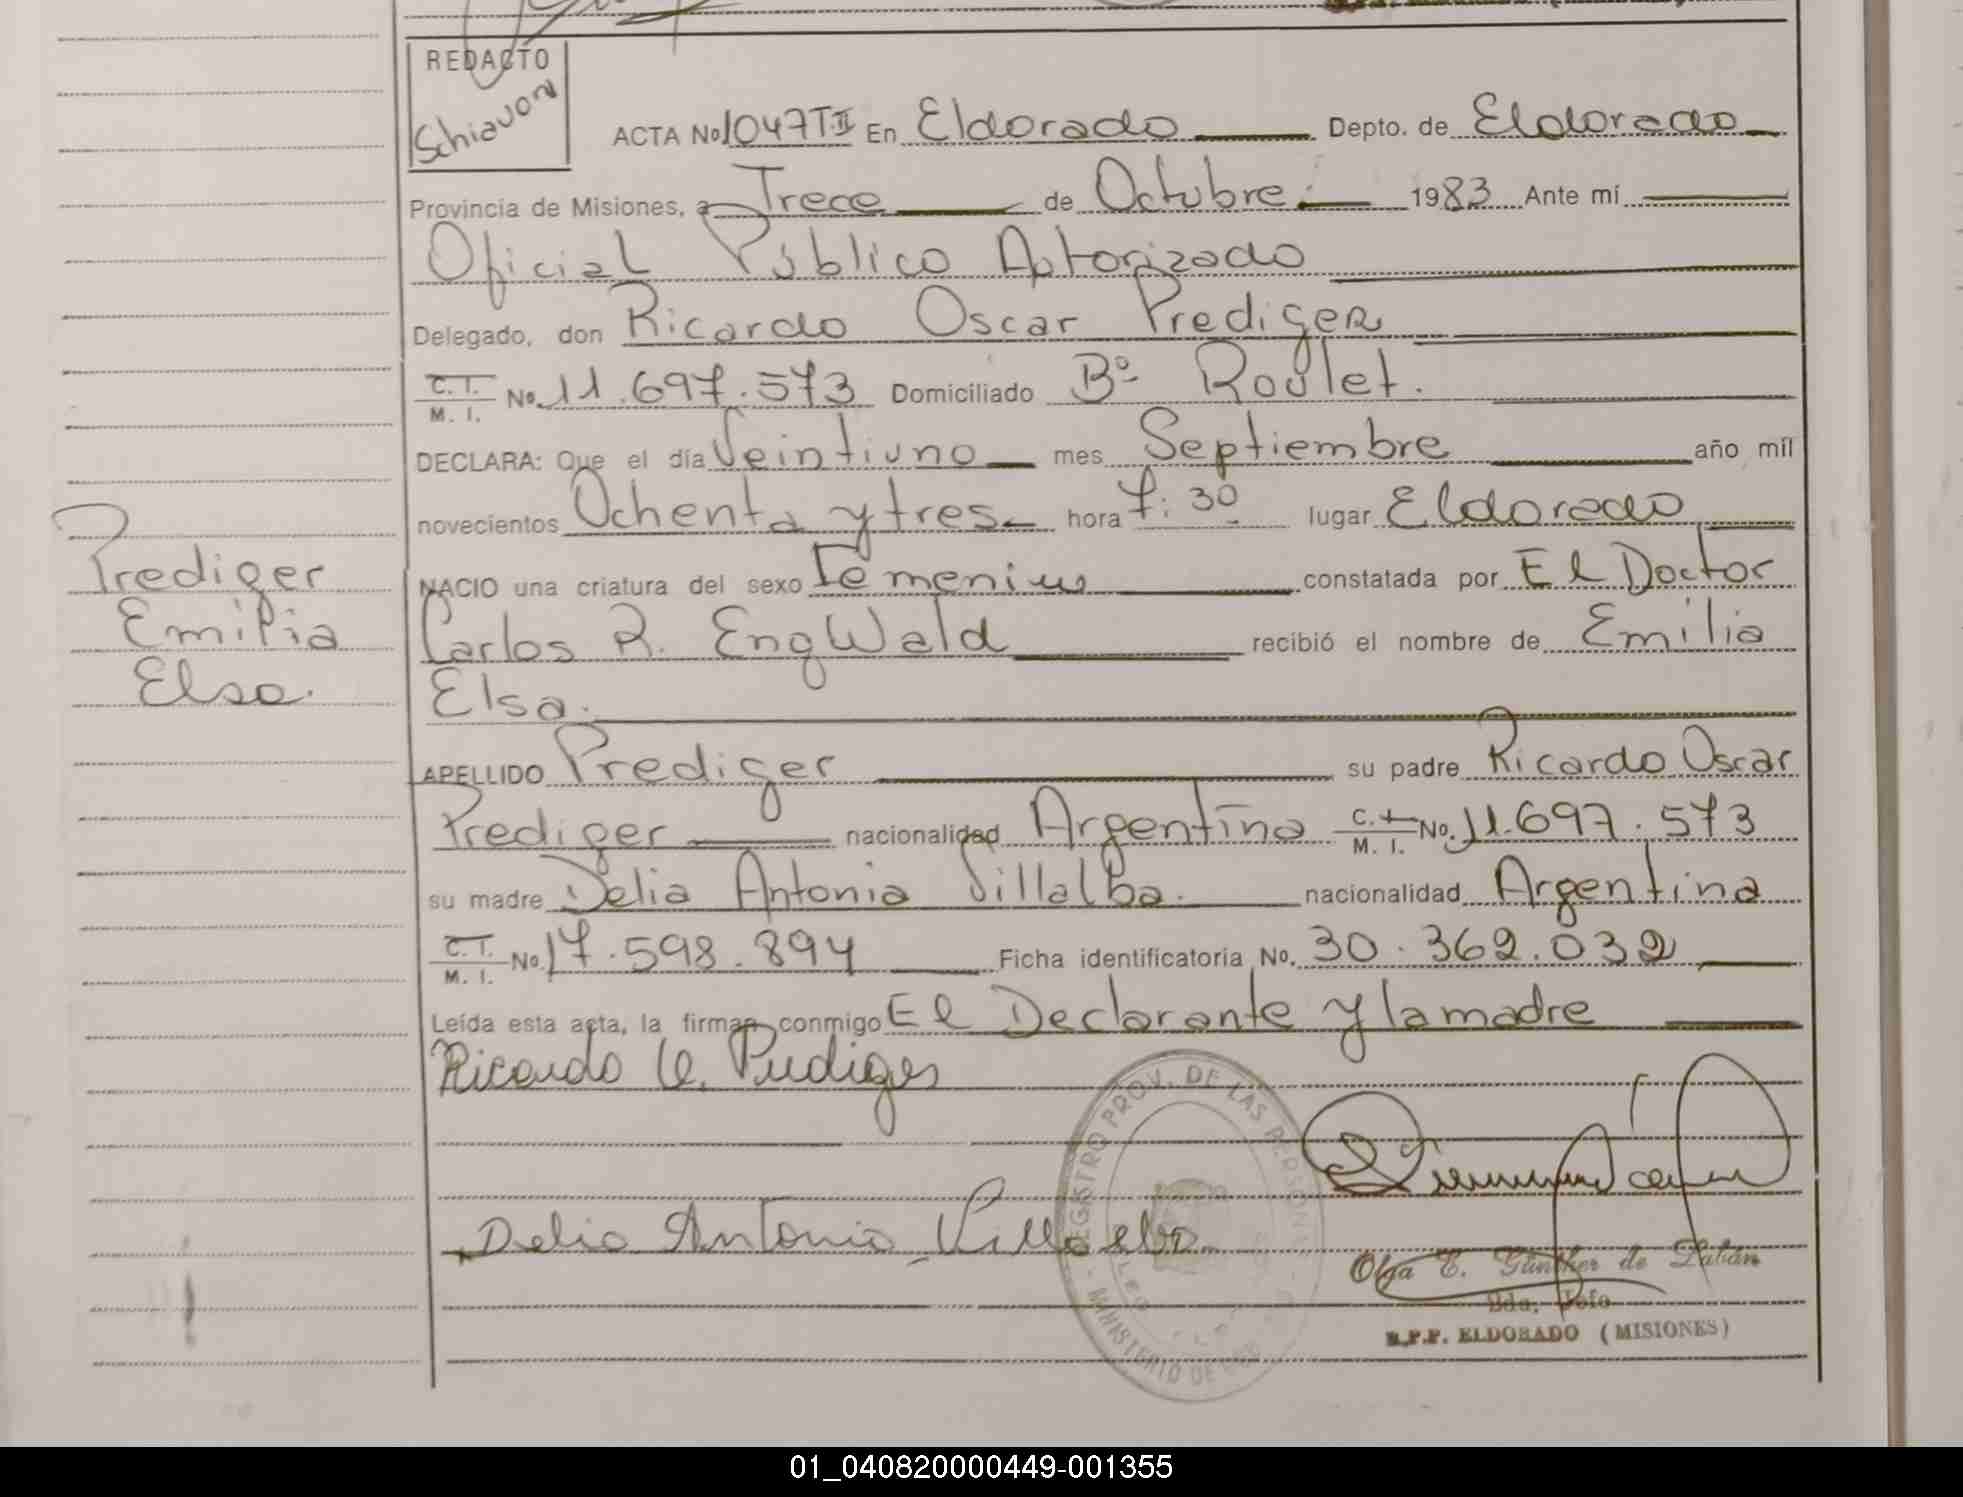 REDACTO
Schiavoni
ACTA No 1047 T.II En Eldorado Depto. de Eldorado
Provincia de Misiones, a Trece de Octubre 1983 Ante mí
Oficial Público Autorizado
Delegado, don Ricardo Oscar Prediger
C. I. M. I. No. 11.697.573 Domiciliado Bº Roulet.
DECLARA: Que el día Veintiuno mes Septiembre año mil
novecientos Ochenta y tres hora 7:30 lugar Eldorado
NACIO una criatura del sexo Femenino constatada por El Doctor
Carlos R. EngWald recibió el nombre de Emilia
Elsa.
Prediger
Emilia
Elsa.
APELLIDO Prediger su padre Ricardo Oscar
Prediger nacionalidad Argentina C. I. M. I. No. 11.697.573
su madre Delia Antonia Villalba. nacionalidad Argentina
C. I. M. I. No. 17.598.894 Ficha identificatoria No. 30.362.032
Leída esta acta, la firman conmigo El Declarante y la madre
Ricardo O. Prediger
Delia Antonia Villalba
REGISTRO PROV. DE LAS PERSONAS
MINISTERIO DE
Olga E. Günther de
2da. Jefe
R.P.P. ELDORADO (MISIONES)
01_040820000449-001355